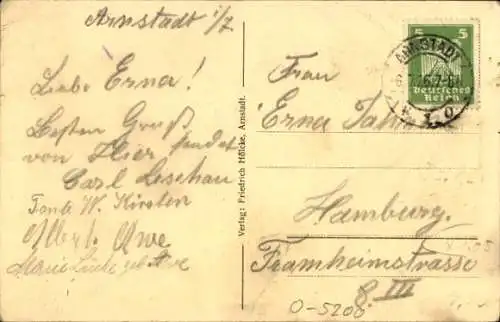 Arnstadt i/Z
Liebe Erna!
Besten Gruß
von Hier sendet
Carl Leschau
W. Kirsten
Albert Uwe
Marie
Verlag: Friedrich Hölcke, Arnstadt.
5 5
Deutsches
Reich
ARNSTADT
Frau
Erna
Hamburg.
Framheimstrasse
8 III
0-5200